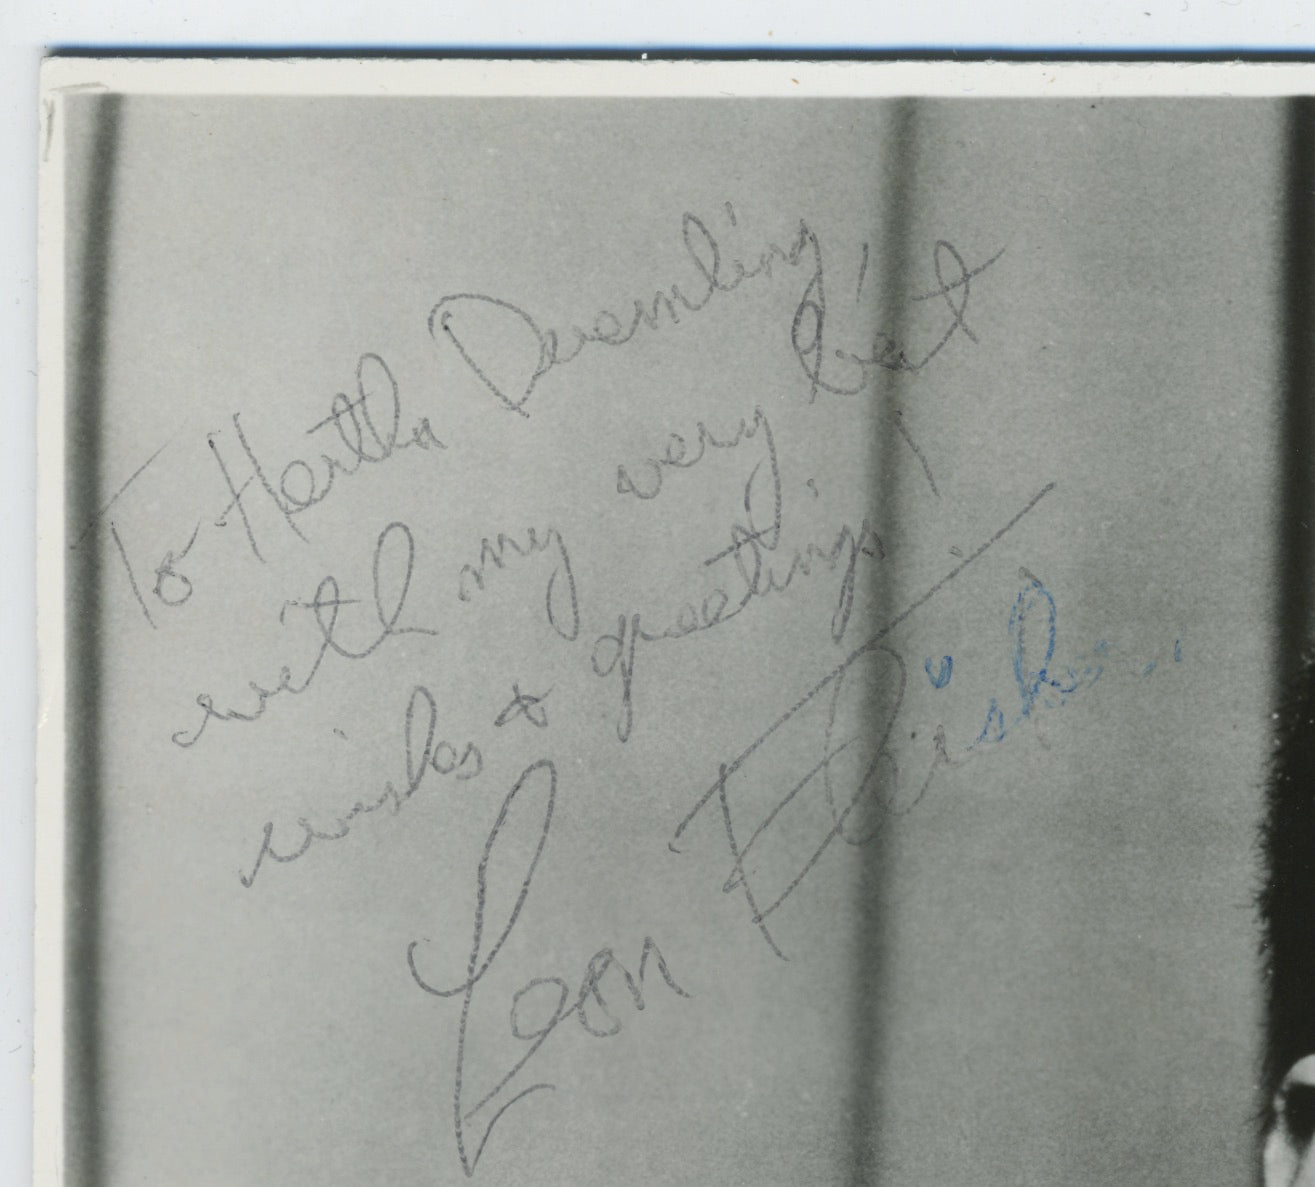 To Hertha
with my very best
wishes & greetings!
Leon Fleisher